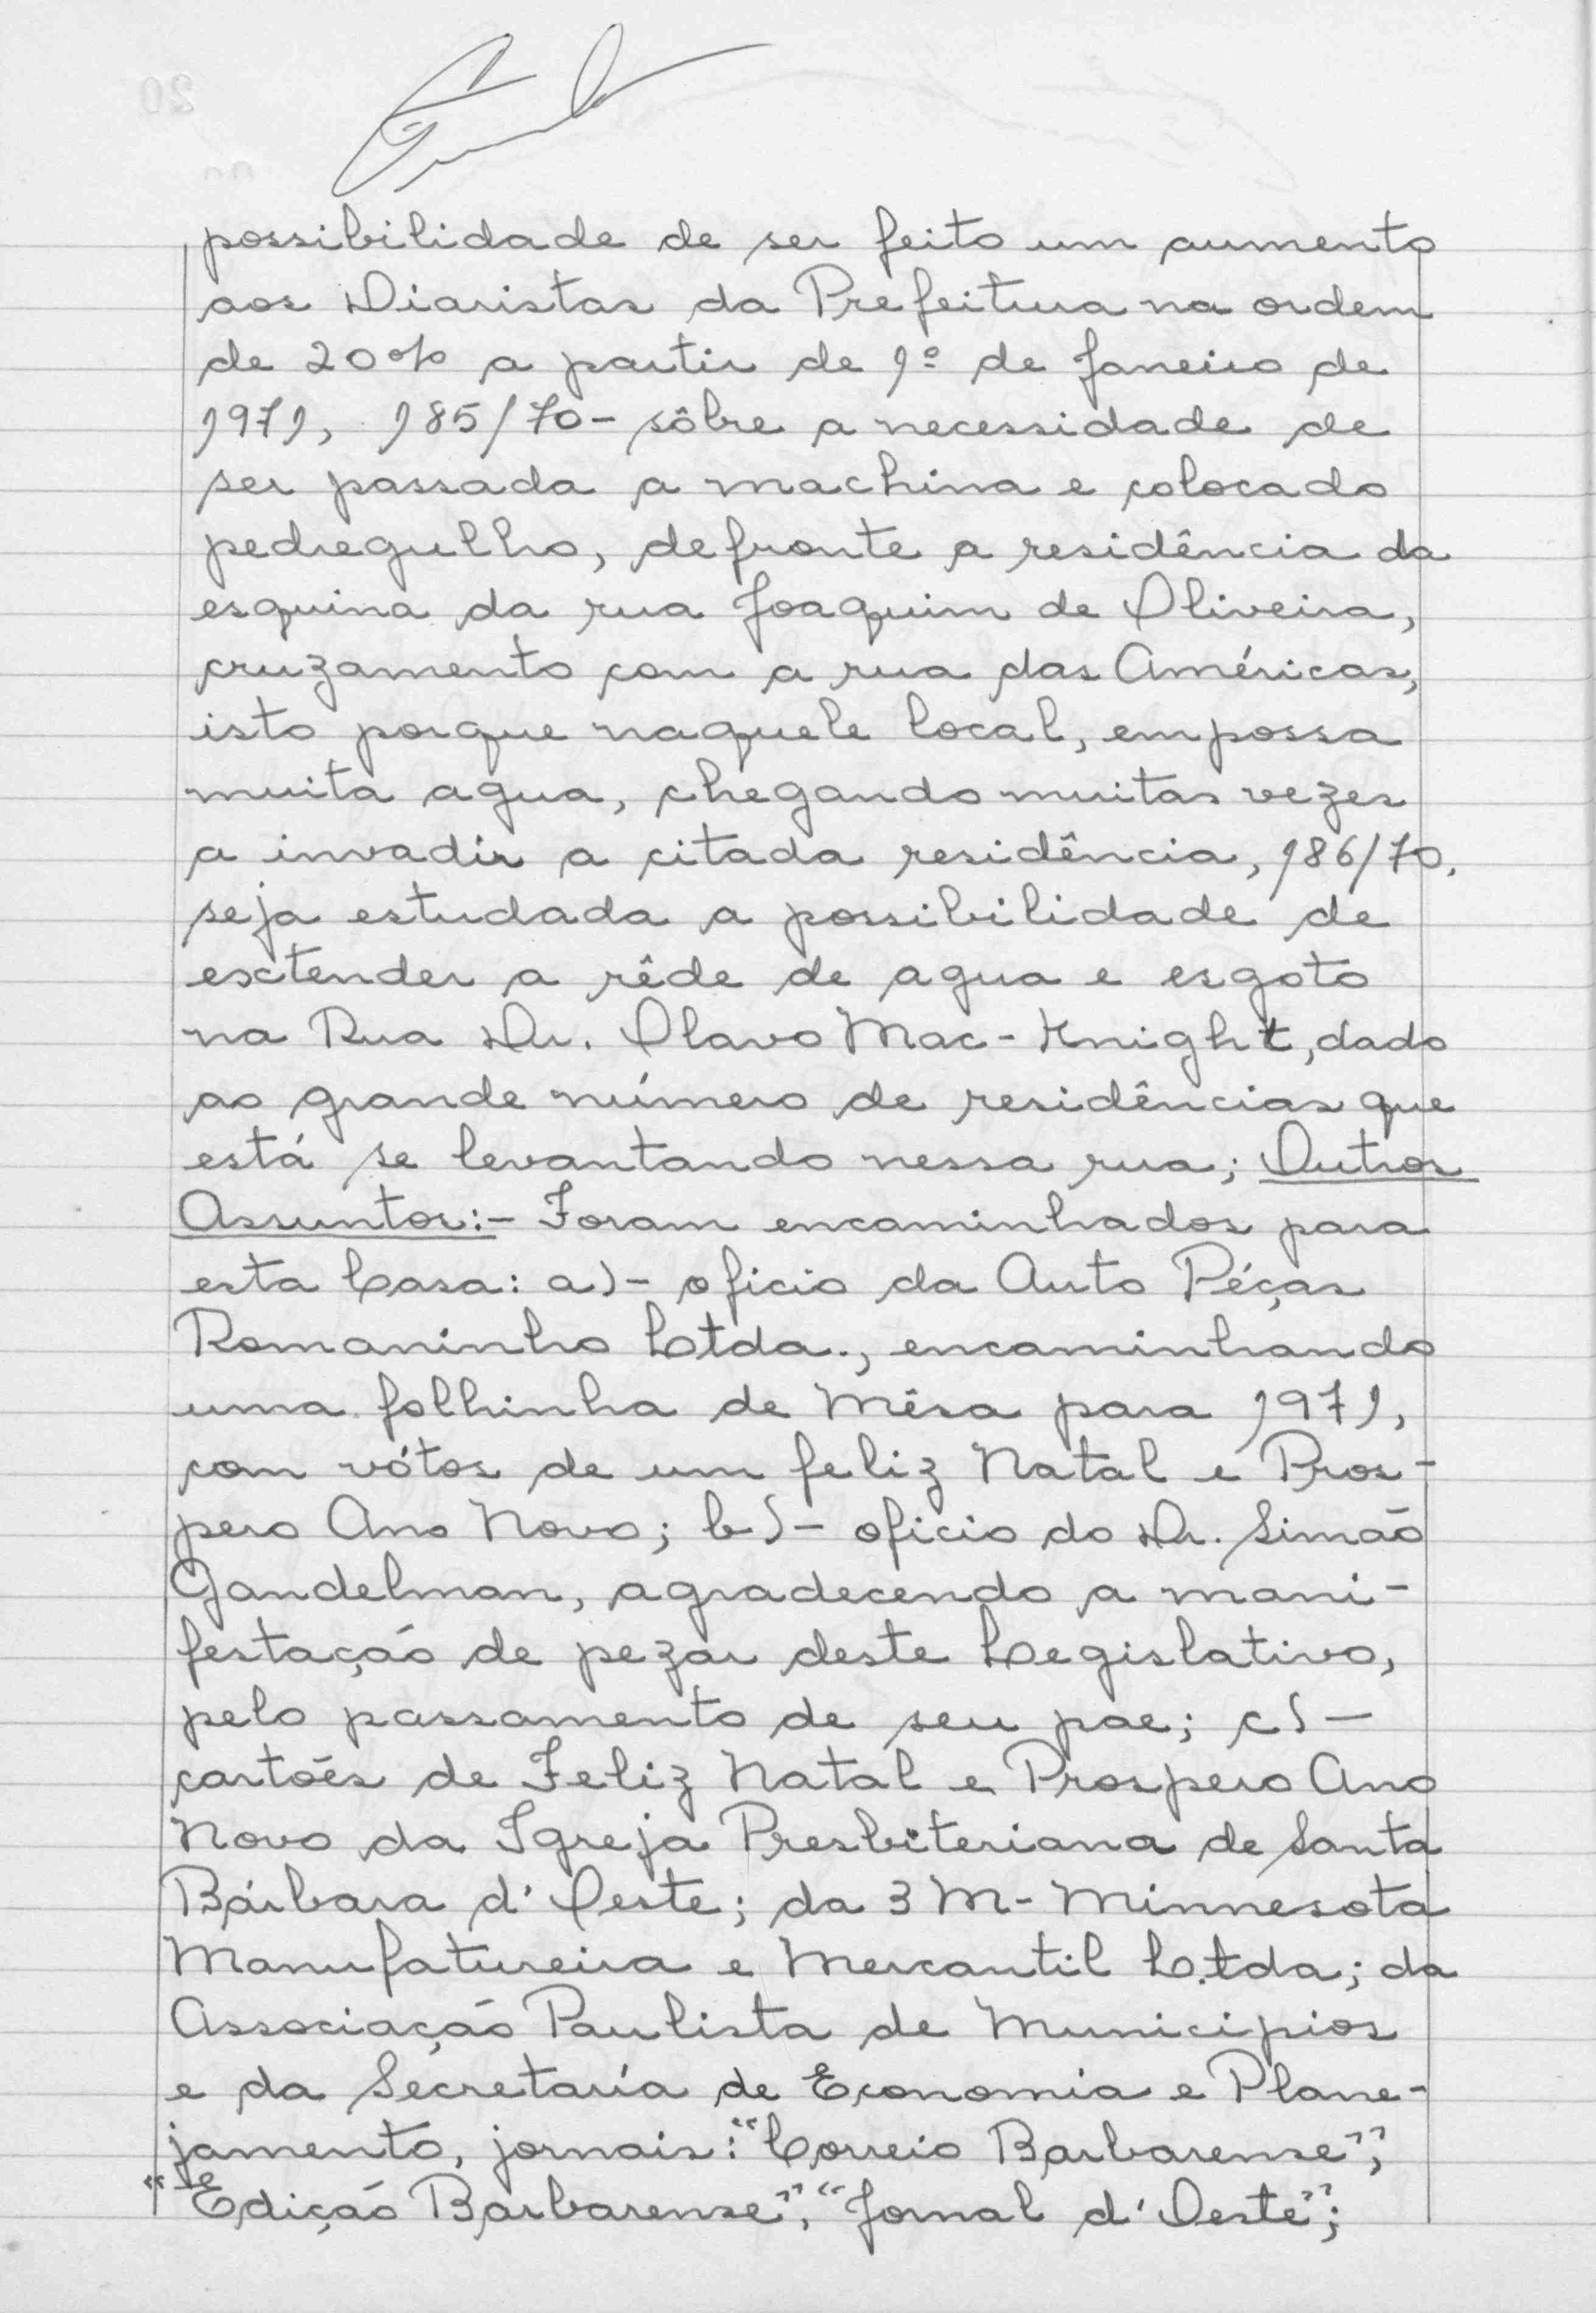 possibilidade de ser feito um aumento
aos Diaristas da Prefeitura na ordem
de 20% a partir de 1º de Janeiro de
1971, 185/70 - sôbre a necessidade de
ser passada a machina e colocado
pedregulho, defronte a residência da
esquina da rua Joaquim de Oliveira,
cruzamento com a rua das Américas,
isto porque naquele local, empossa
muita agua, chegando muitas vezes
a invadir a citada residência, 186/70.
seja estudada a possibilidade de
extender a rêde de agua e esgoto
na Rua Dr. Olavo Mac-Knight, dado
ao grande número de residências que
está se levantando nessa rua; Outros
Assuntos:- Foram encaminhados para
esta Casa: a)- oficio da Auto Péças
Romaninho Ltda., encaminhando
uma folhinha de Mêsa para 1971,
com vótos de um feliz Natal e Pros-
pero Ano Novo; b)- oficio do Dr. Simão
Gandelman, agradecendo a mani-
festação de pezar deste Legislativo,
pelo passamento de seu pae; c)-
cartões de Feliz Natal e Prospero Ano
Novo da Igreja Presbiteriana de Santa
Bárbara d'Oeste; da 3M - Minnesota
Manufatureira e Mercantil Ltda; da
Associação Paulista de Municipios
e da Secretaria de Economia e Plane-
jamento, jornais: "Correio Barbarense",
"Edição Barbarense", "Jornal d'Oeste";